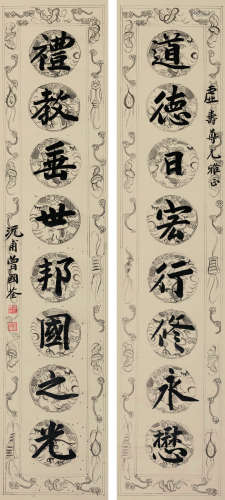 虛壽尊兄雅正
道德日宏行修永懋
禮教垂世邦國之光
沅甫曾國荃